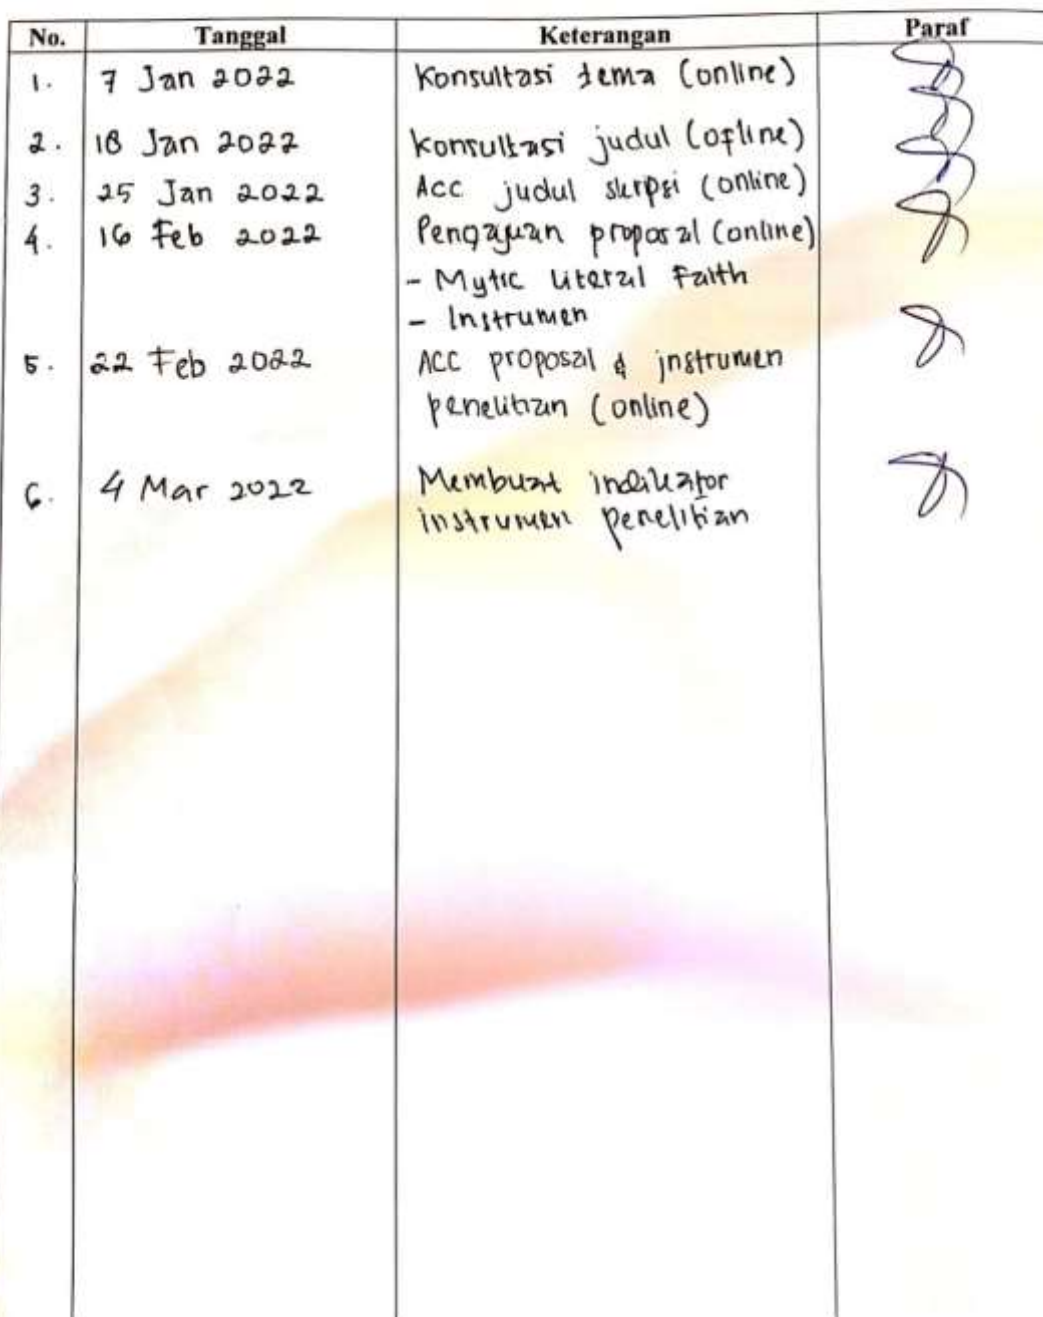 No. Tanggal Keterangan Paraf
1. 7 Jan 2022 Konsultasi tema (online)
2. 18 Jan 2022 Konsultasi judul (ofline)
3. 25 Jan 2022 Acc judul skripsi (online)
4. 16 Feb 2022 Pengajuan proposal (online)
- Mytic literal Faith
- Instrumen
5. 22 Feb 2022 ACC proposal & instrumen
penelitian (online)
6. 4 Mar 2022 Membuat indikator
instrumen penelitian